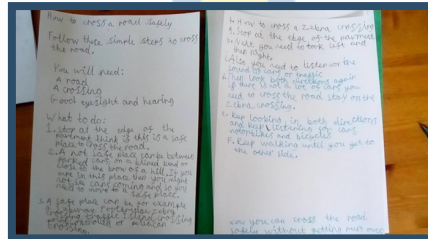 How to cross a road safely
Follow these simple steps to cross
the road.
You will need:
A road
A crossing
Good eyesight and hearing
What to do:
1. Stop at the edge of the
pavement think if this is a safe
place to cross the road.
2. A not safe place can be between
parked cars on a blind bend or
close to the brow of a hill. If you
are in this place then you might
not see cars coming and so you
need to move to a safe place.
3. A safe place can be for example
crossing
crossing.
How to cross a Zebra crossing
Stop at the edge of the pavement
Next you need to look left and
then right.
Also you need to listen for the
sound of cars or traffic
look both directions again
if there is not a lot of cars you
need to cross the road stay on the
Zebra crossing.
Keep looking in both directions
and keep listening for cars
motorbikes and bicycles
F. Keep walking until you get to
the other side.
Now you can cross the road
safely without getting run over